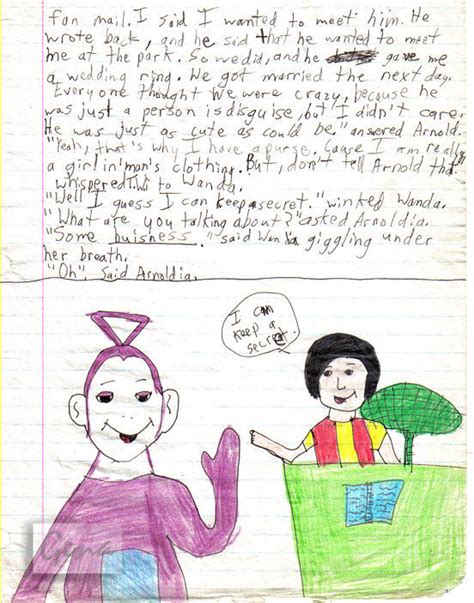 fan mail. I said I wanted to meet him. He
wrote back, and he said that he wanted to meet
me at the park. So we did, and he gave me
a wedding ring. We got married the next day.
Everyone thought we were crazy, because he
was just a person is disguise, but I didn't care.
He was just as cute as could be." answered Arnold.
"Yeah, that's why I have a purse. Cause I am really
a girl in man's clothing. But, don't tell Arnold that
whispered to Wanda.
"Well I guess I can keep a secret." winked Wanda.
"What are you talking about?" asked Arnoldia.
"Some buisness." said giggling under
her breath.
"Oh". Said Arnoldia.
I can
keep a
secret.
Gena